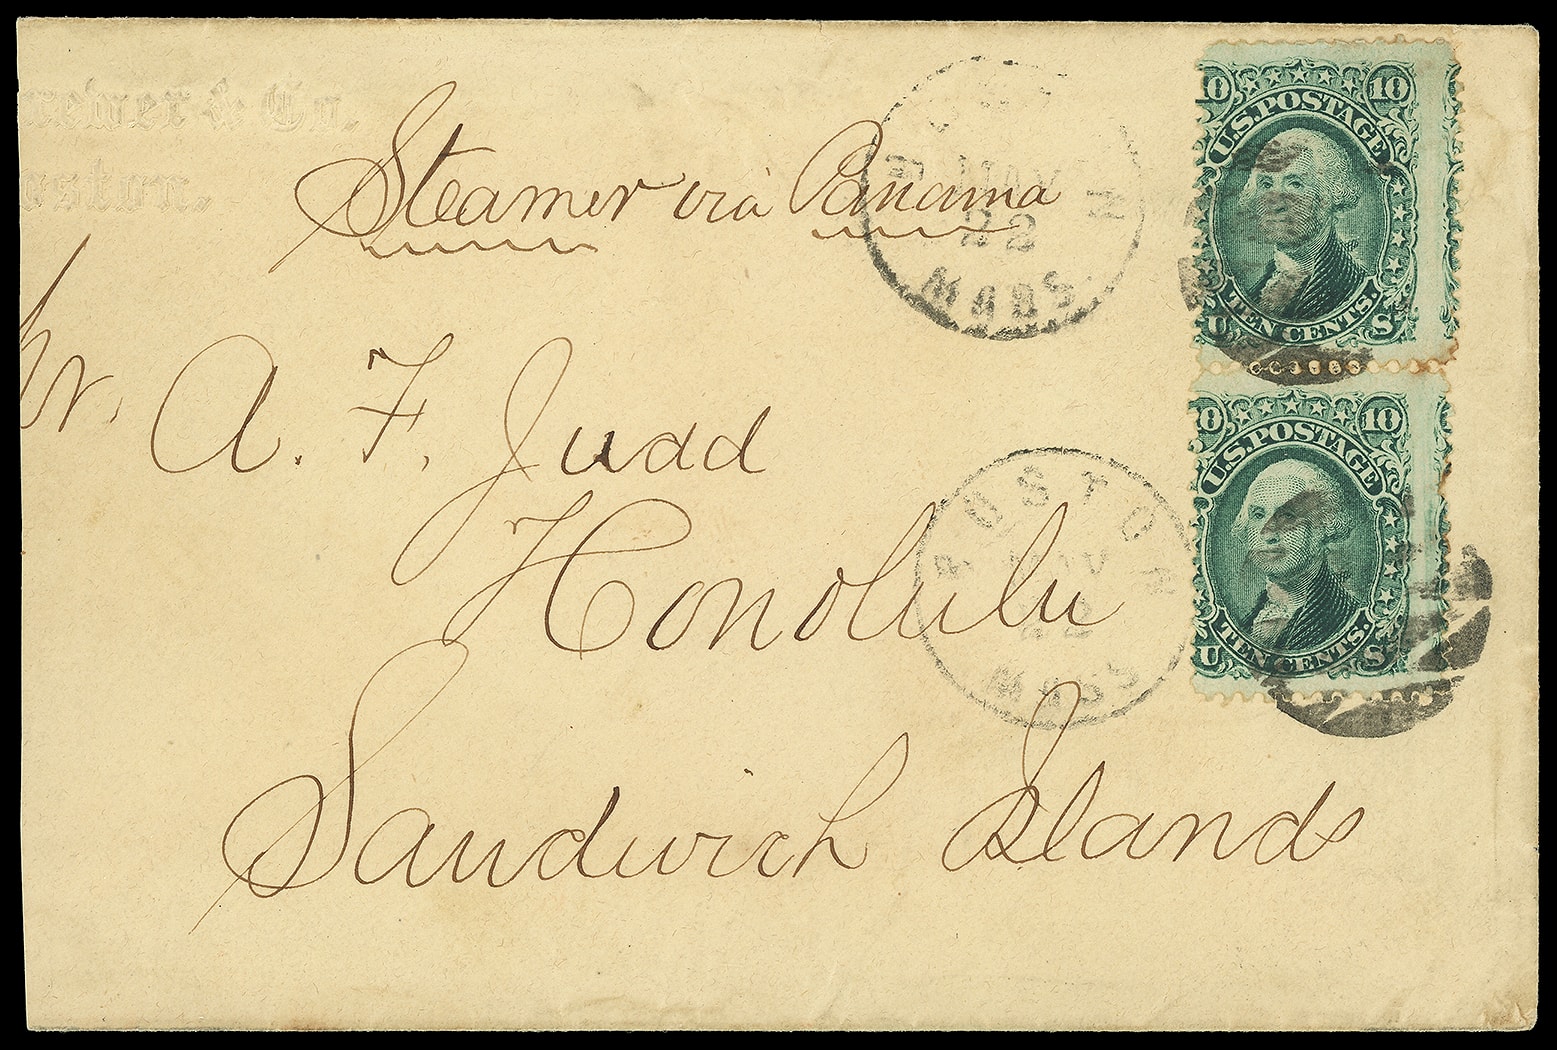 rewer & Co.
oston.
Steamer via Panama
Mr. A. F. Judd
Honolulu
Sandwich Islands
NOV
22
MASS
BOSTON
NOV
22
MASS
10 10
U.S. POSTAGE
TEN CENTS.
U S
10 10
U.S. POSTAGE
TEN CENTS.
U S